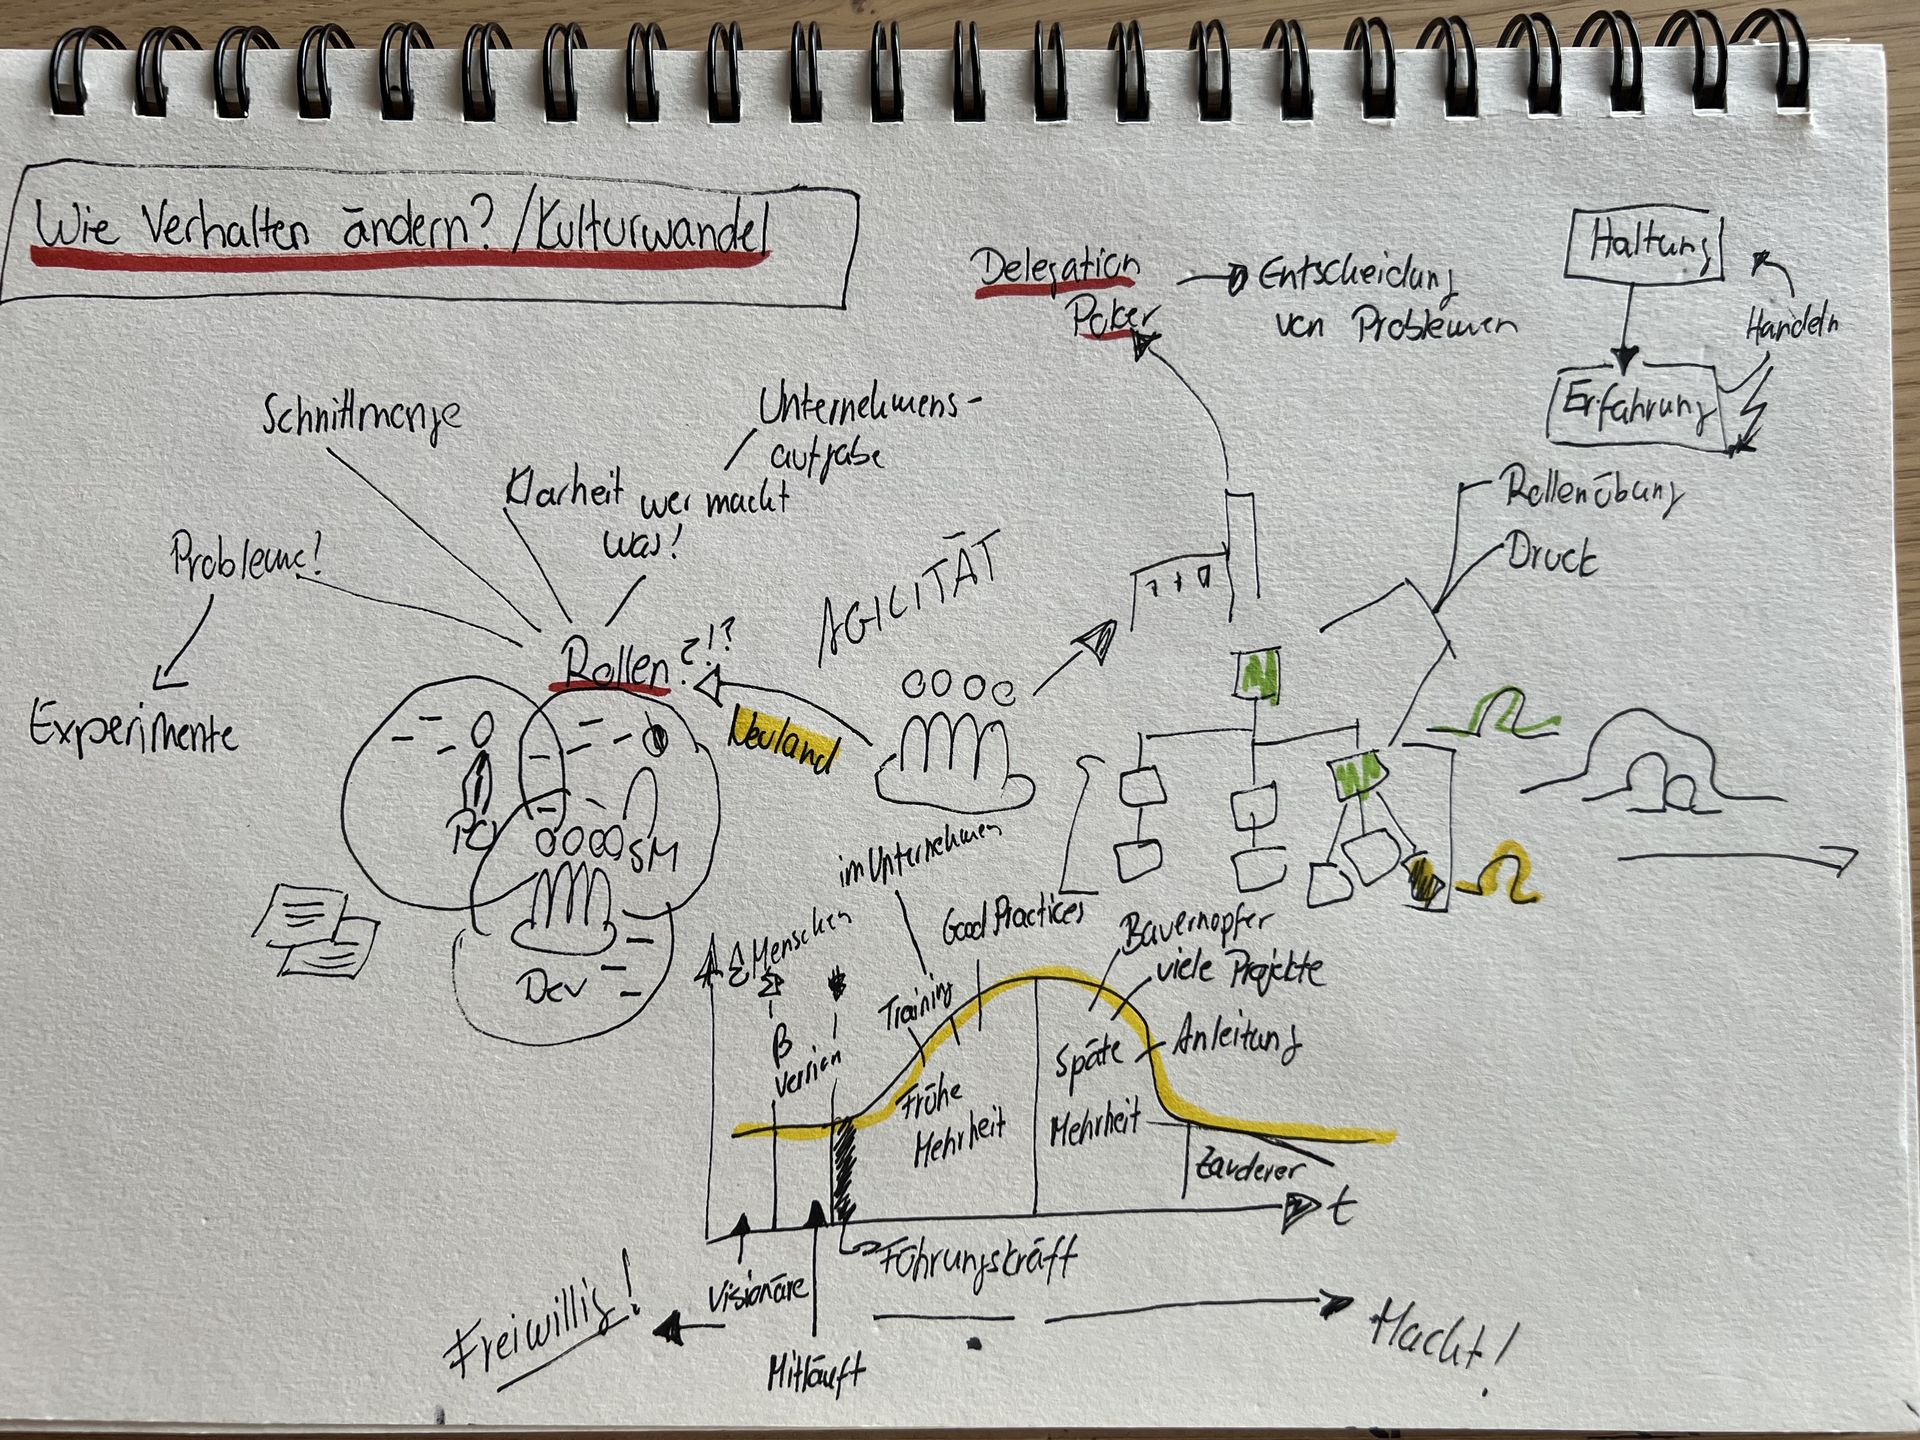 Wie Verhalten ändern? / Kulturwandel
Delegation
Poker
Entscheidung
von Problemen
Haltung
Handeln
Erfahrung
Schnittmenge
Unternehmens-
aufgabe
Klarheit wer macht
was!
Probleme!
Experimente
Rollen ?!?
AGILITÄT
Neuland
Rollenübung
Druck
PO
SM
Dev
im Unternehmen
Good Practices
Menschen
Training
Bauernopfer
viele Projekte
Anleitung
β
Version
Frühe
Mehrheit
Späte
Mehrheit
Zauderer
t
Visionäre
Führungskräft
Mitläuft
Freiwillig!
Macht!